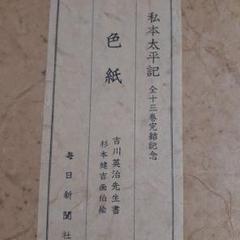 私本太平記 全十三巻完結記念
色紙
吉川英治先生書
杉本健吉画伯絵
毎日新聞社